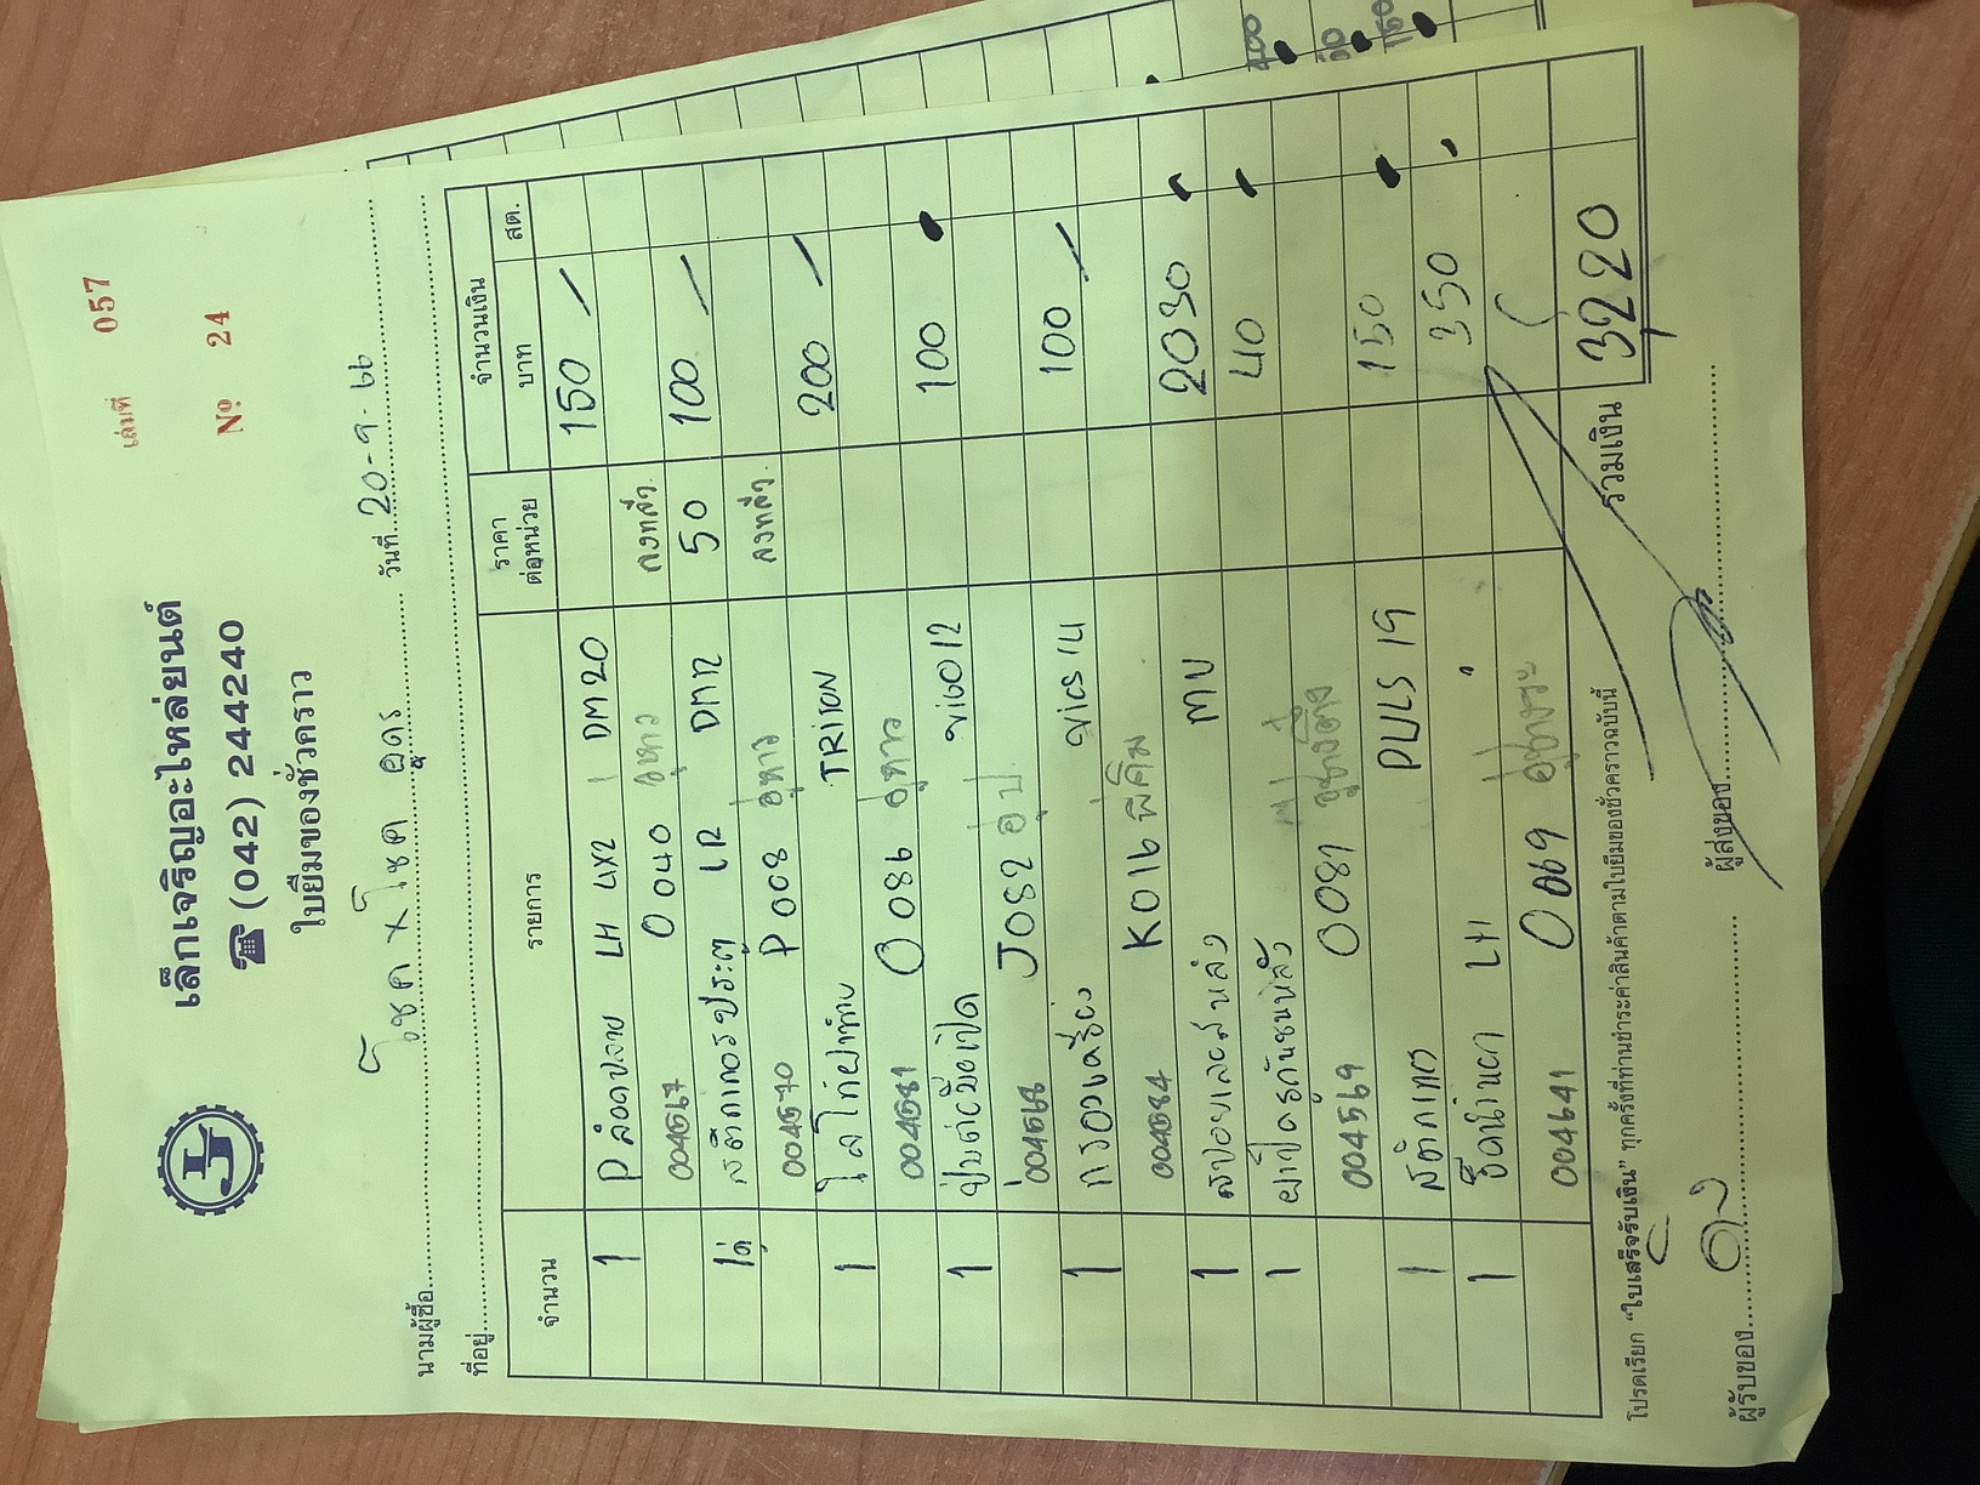 เล่มที่ 057
เล็กเจริญอะไหล่ยนต์
☎ (042) 244240
№ 24
ใบยืมของชั่วคราว
นามผู้ซื้อ โชค x โชค อุดร วันที่ 20-9-66
ที่อยู่
จำนวน รายการ ราคาต่อหน่วย จำนวนเงิน
บาท สต.
1 P ลอดปลาย LH 4X2 DM20 150 /
004567 0040 ลงทสำ.
1คู่ สติกเกอร์ประตู LR DMท 50 100 /
004570 P008 ลงทสำ.
1 TRITON 200 /
004581 0086
1 ปุ่มต่อมือเปิด vigo12 100
004568 J082
1 กรองเครื่อง vics 14 100 /
004584 K016
1 MU 2030
1 ฝาปิดกันชนหลัง 40
004569 0081
1 สติกเกอร์ PULS 19 150
1 LH 350
004641 0069
รวมเงิน 3,220
โปรดเรียก "ใบเสร็จรับเงิน" ทุกครั้งที่ท่านชำระค่าสินค้าตามใบยืมของชั่วคราวฉบับนี้
ผู้รับของ ผู้ส่งของ
400
150